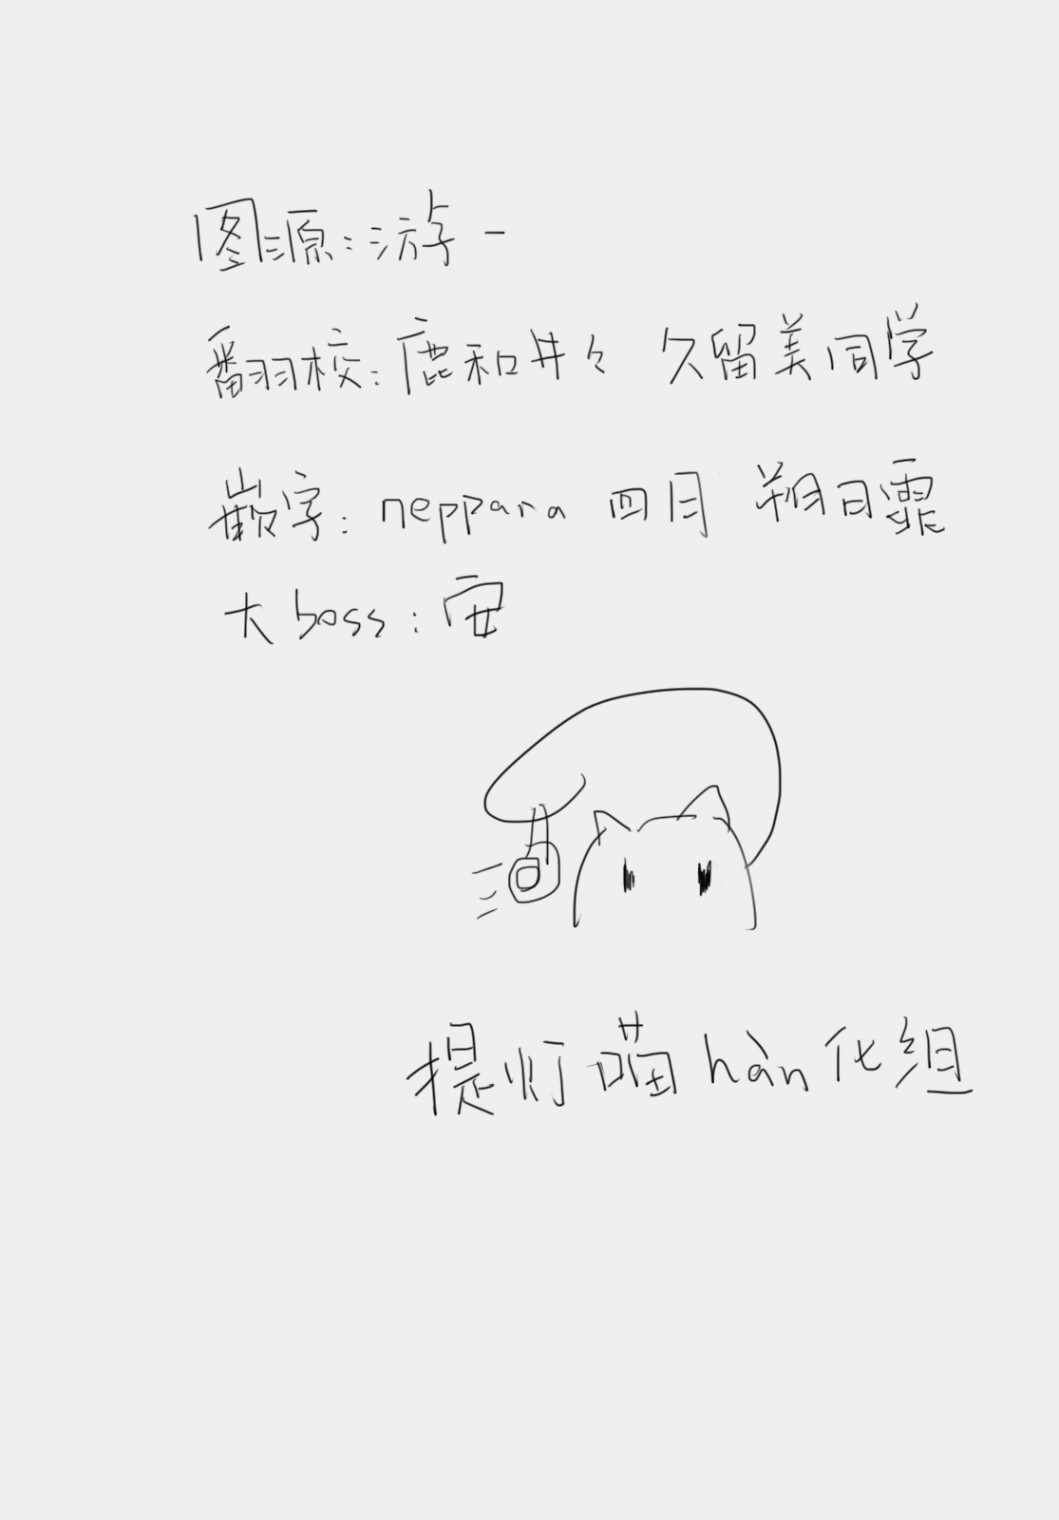 图源:游一
翻校:鹿和井々 久留美同学
嵌字:neppara 四月 朔日霏
大boss:安
提灯喵hàn化组